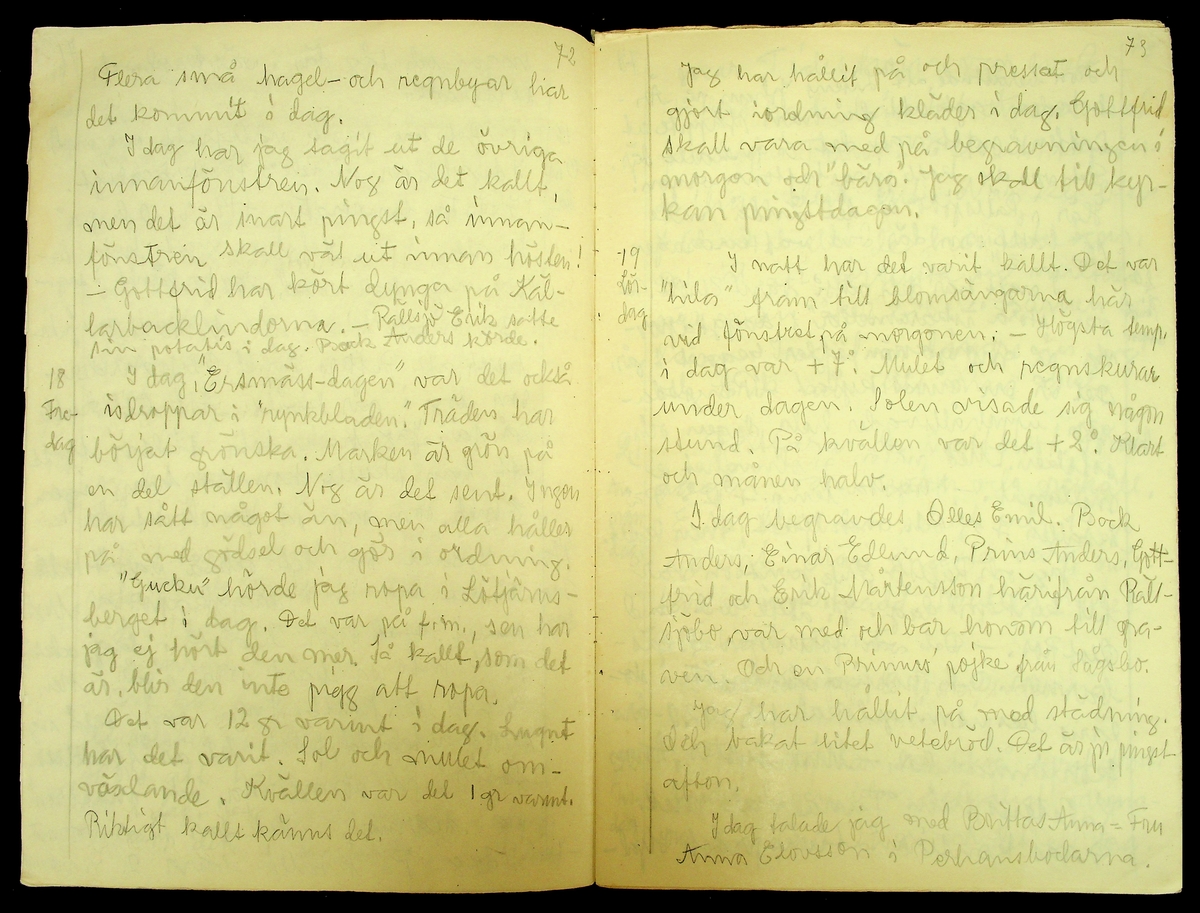 72
Flera små hagel- och regnbyar har
det kommit i dag.
I dag har jag tagit ut de övriga
innanfönstren. Nog är det kallt,
men det är snart pingst, så innan-
fönstren skall väl ut innan hösten!
- Gottfrid har kört dynga på Käl-
larbacklindorna. - Rällsjö Erik satte
sin potatis i dag. Bock Anders körde.
18
Fre-
dag
I dag, "Ersmäss-dagen" var det också
isdroppar i "rynkbladen". Träden har
börjat grönska. Marken är grön på
en del ställen. Nog är det sent. Ingen
har sått något än, men alla håller
på med gödsel och gör i ordning.
"Gucku" hörde jag ropa i Lötjärns-
berget i dag. Det var på f.m., sen har
jag ej hört den mer. Så kallt, som det
är, blir den inte pigg att ropa.
Det var 12 gr varmt i dag. Lugnt
har det varit. Sol och mulet om-
växlande. Kvällen var det 1 gr varmt.
Riktigt kallt känns det.
73
Jag har hållit på och pressat och
gjort iordning kläder i dag. Gottfrid
skall vara med på begravningen i
morgon och "bära". Jag skall till kyr-
kan pingstdagen.
19
Lör-
dag
I natt har det varit kallt. Det var
"hila" fram till blomsängarna här
vid fönstret på morgonen. - Högsta temp.
i dag var +7°. Mulet och regnskurar
under dagen. Solen visade sig någon
stund. På kvällen var det +2°. Klart
och månen halv.
I dag begravdes Olles Emil. Bock
Anders, Einar Edlund, Prins Anders, Gott-
frid och Erik Mårtensson härifrån Räll-
sjöbo, var med och bar honom till gra-
ven. Och en Prinurs' pojke från Sågsbo.
Jag har hållit på med städning.
Och bakat litet vetebröd. Det är ju pingst-
afton.
I dag talade jag med Brittas Anna = Fru
Anna Elovsson i Perhansbodarna.